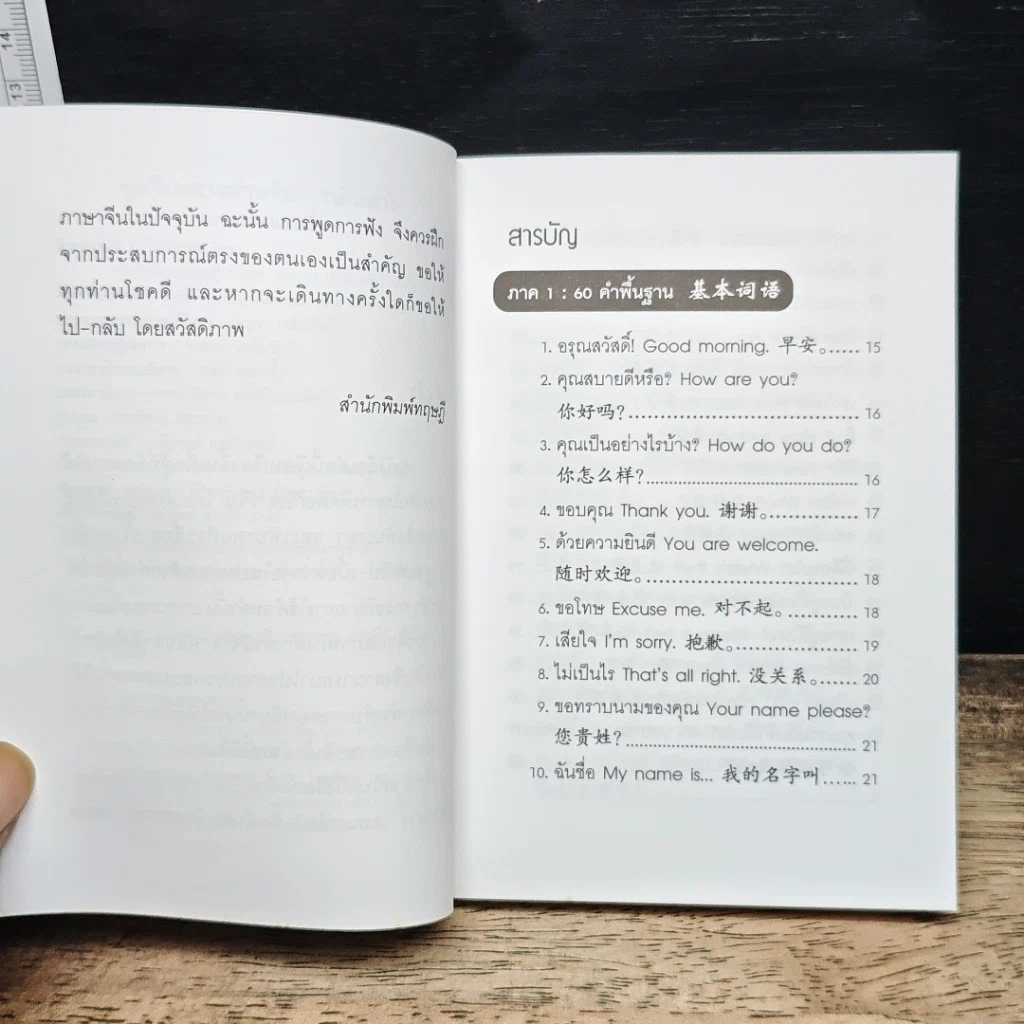 14
13
ภาษาจีนในปัจจุบัน ฉะนั้น การพูดการฟัง จึงควรฝึก
จากประสบการณ์ตรงของตนเองเป็นสำคัญ ขอให้
ทุกท่านโชคดี และหากจะเดินทางครั้งใดก็ขอให้
ไป-กลับ โดยสวัสดิภาพ
สำนักพิมพ์ทฤษฎี
สารบัญ
ภาค 1 : 60 คำพื้นฐาน 基本词语
1. อรุณสวัสดิ์! Good morning. 早安。..... 15
2. คุณสบายดีหรือ? How are you?
你好吗?................................ 16
3. คุณเป็นอย่างไรบ้าง? How do you do?
你怎么样?................................ 16
4. ขอบคุณ Thank you. 谢谢。............. 17
5. ด้วยความยินดี You are welcome.
随时欢迎。............................... 18
6. ขอโทษ Excuse me. 对不起。........... 18
7. เสียใจ I'm sorry. 抱歉。.................. 19
8. ไม่เป็นไร That's all right. 没关系。...... 20
9. ขอทราบนามของคุณ Your name please?
您贵姓?................................ 21
10. ฉันชื่อ My name is... 我的名字叫...... 21